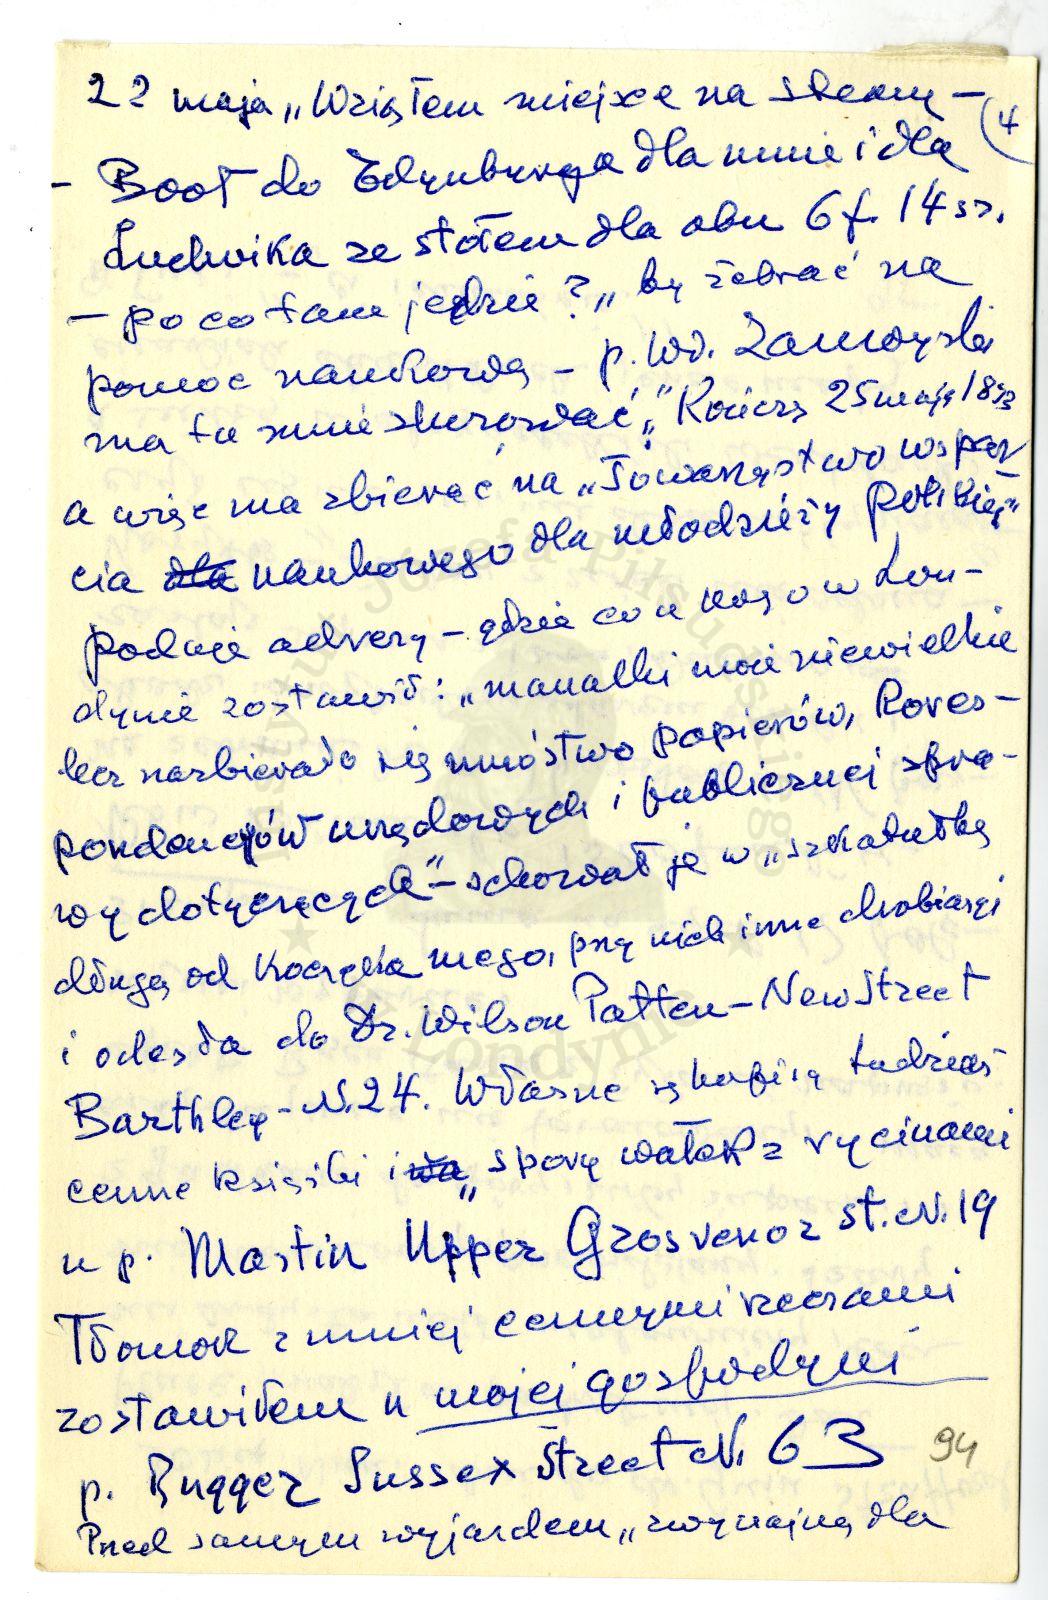 22 maja „Wziąłem miejsce na steam — (4
- Boot do Edynburga dla mnie i dla
Ludwika ze stołem dla obu 6 f. 14 sz.
— po co tam jedzie? „by żebrać na
pomoc naukową — p. Wł. Zamoyski
ma tu mnie zluzować", 25 maja 1833
a więc ma zbierać na „Towarzystwo wspar
cia dla naukowego dla młodzieży polskiej"
podaje adresy — gdzie co u kogo w Lon-
dynie zostawił: „manatki moje niewielkie
lecz nazbierało się mnóstwo papierów, kores-
pondencyjów urzędowych i publicznej spra-
wy dotyczących" — schował je w „szkatułkę
długą od koczyka mego, przy nich inne drobiazgi
i odesła do Dr. Wilson Patten — New Street
Barthley — N. 24. Własne są kopią tudzież
cenne książki i „spory wałek z rycinami
u p. Mastin Upper Grosvenor st. N. 19
Tłomok z mniej cennymi rzeczami
zostawiłem u mojej gospodyni
p. Bugger Sussex Street N. 63 94
Przed samym wyjazdem „wynajmę dla
Instytut Józefa Piłsudskiego
w Londynie